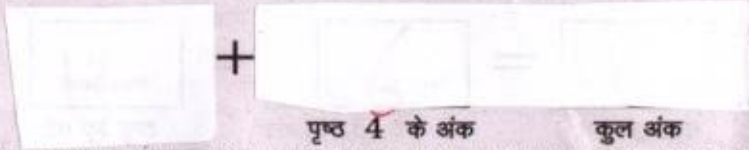 +
पृष्ठ 4 के अंक कुल अंक